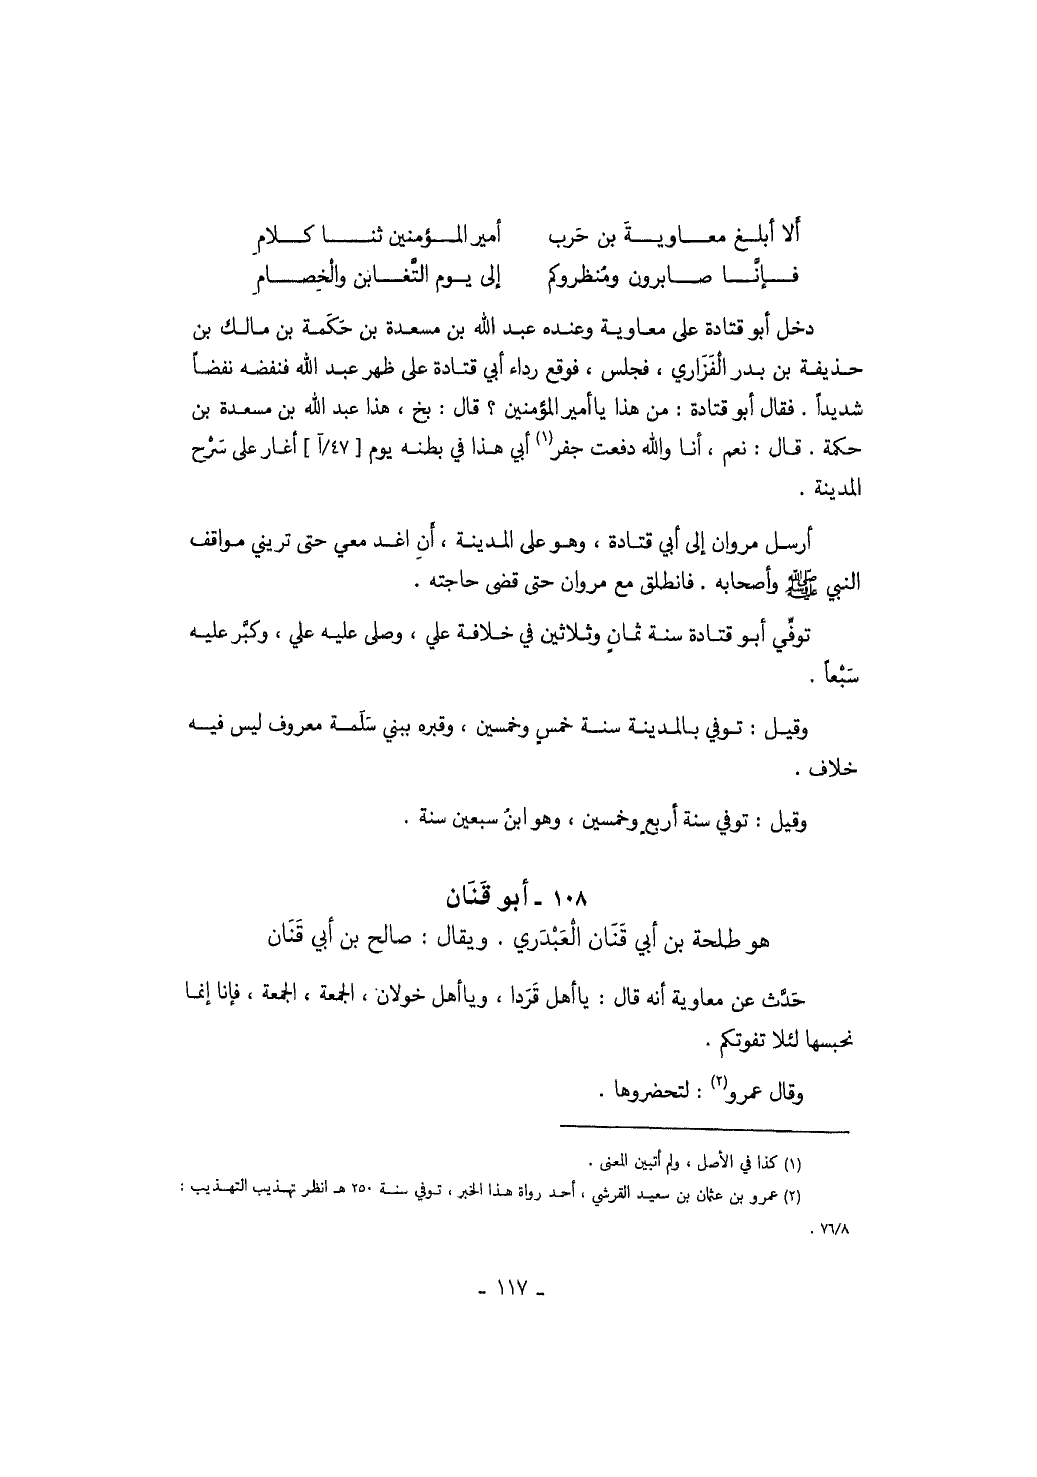 أَلا أبلـغ معـاويـةَ بن حَرب أمير المـؤمنين ثنـا كـلامِ
فـإنَّـا صـابرون ومُنظروكم إلى يـوم التَّغـابن والْخِصـامِ
دخل أبو قتادة على معاويـة وعنـده عبـد الله بن مسعدة بن حَكَمـة بن مـالـك بن
حـذيفـة بن بـدر الْفَزَاري ، فجلس ، فوقع رداء أبي قتـادة على ظهر عبـد الله فنفضـه نفضـاً
شديداً . فقال أبو قتادة : من هذا ياأمير المؤمنين ؟ قال : بخ ، هذا عبد الله بن مسعـدة بن
حكمة . قـال : نعم ، أنـا والله دفعت جفر(١) أبي هـذا في بطنـه يوم [ ٤٧/آ ] أغـار على سَرْح
المدينة .
أرسـل مروان إلى أبي قتـادة ، وهـو على المـدينـة ، أَنِ اغـد معي حتى تريني مـواقف
النبي ﷺ وأصحابه . فانطلق مع مروان حتى قضى حاجته .
توفِّي أبـو قتـادة سنـة ثمـانٍ وثـلاثين في خـلافـة علي ، وصلى عليـه علي ، وكبَّر عليـه
سَبْعاً .
وقيـل : تـوفي بـالمـدينـة سنـة خمسٍ وخمسين ، وقبره ببني سَلَمـة معروف ليس فيـه
خلاف .
وقيل : توفي سنة أربعٍ وخمسين ، وهو ابنُ سبعين سنة .
١٠٨ ـ أبو قَنَان
هو طلحة بن أبي قَنَان الْعَبْدَري . ويقال : صالح بن أبي قَنَان
حَدَّث عن معاوية أنه قال : ياأهل قَرَدا ، وياأهل خولان ، الجمعة ، الجمعة ، فإنا إنمـا
نحبسها لئلا تفوتكم .
وقال عمرو(٢) : لتحضروها .
(١) كذا في الأصل ، ولم أتبين المعنى .
(٢) عمرو بن عثمان بن سعيـد القرشي ، أحـد رواة هـذا الخبر ، تـوفي سنـة ٢٥٠ هـ انظر تهـذيب التهـذيب :
٧٦/٨ .
ـ ١١٧ ـ